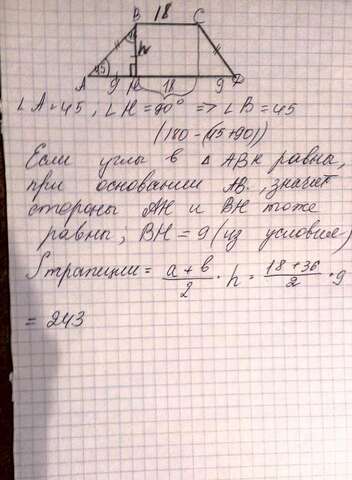 18
B C
h
A 45 9 H 18 9 D
∠A=45, ∠H=90° => ∠B=45
(180-(45+90))
Если углы в △ АВН равны,
при основании АВ, значит
стороны АН и ВН тоже
равны; ВН=9 (из условия)
Sтрапеции = a+b/2 · h = 18+36/2 · 9
= 243